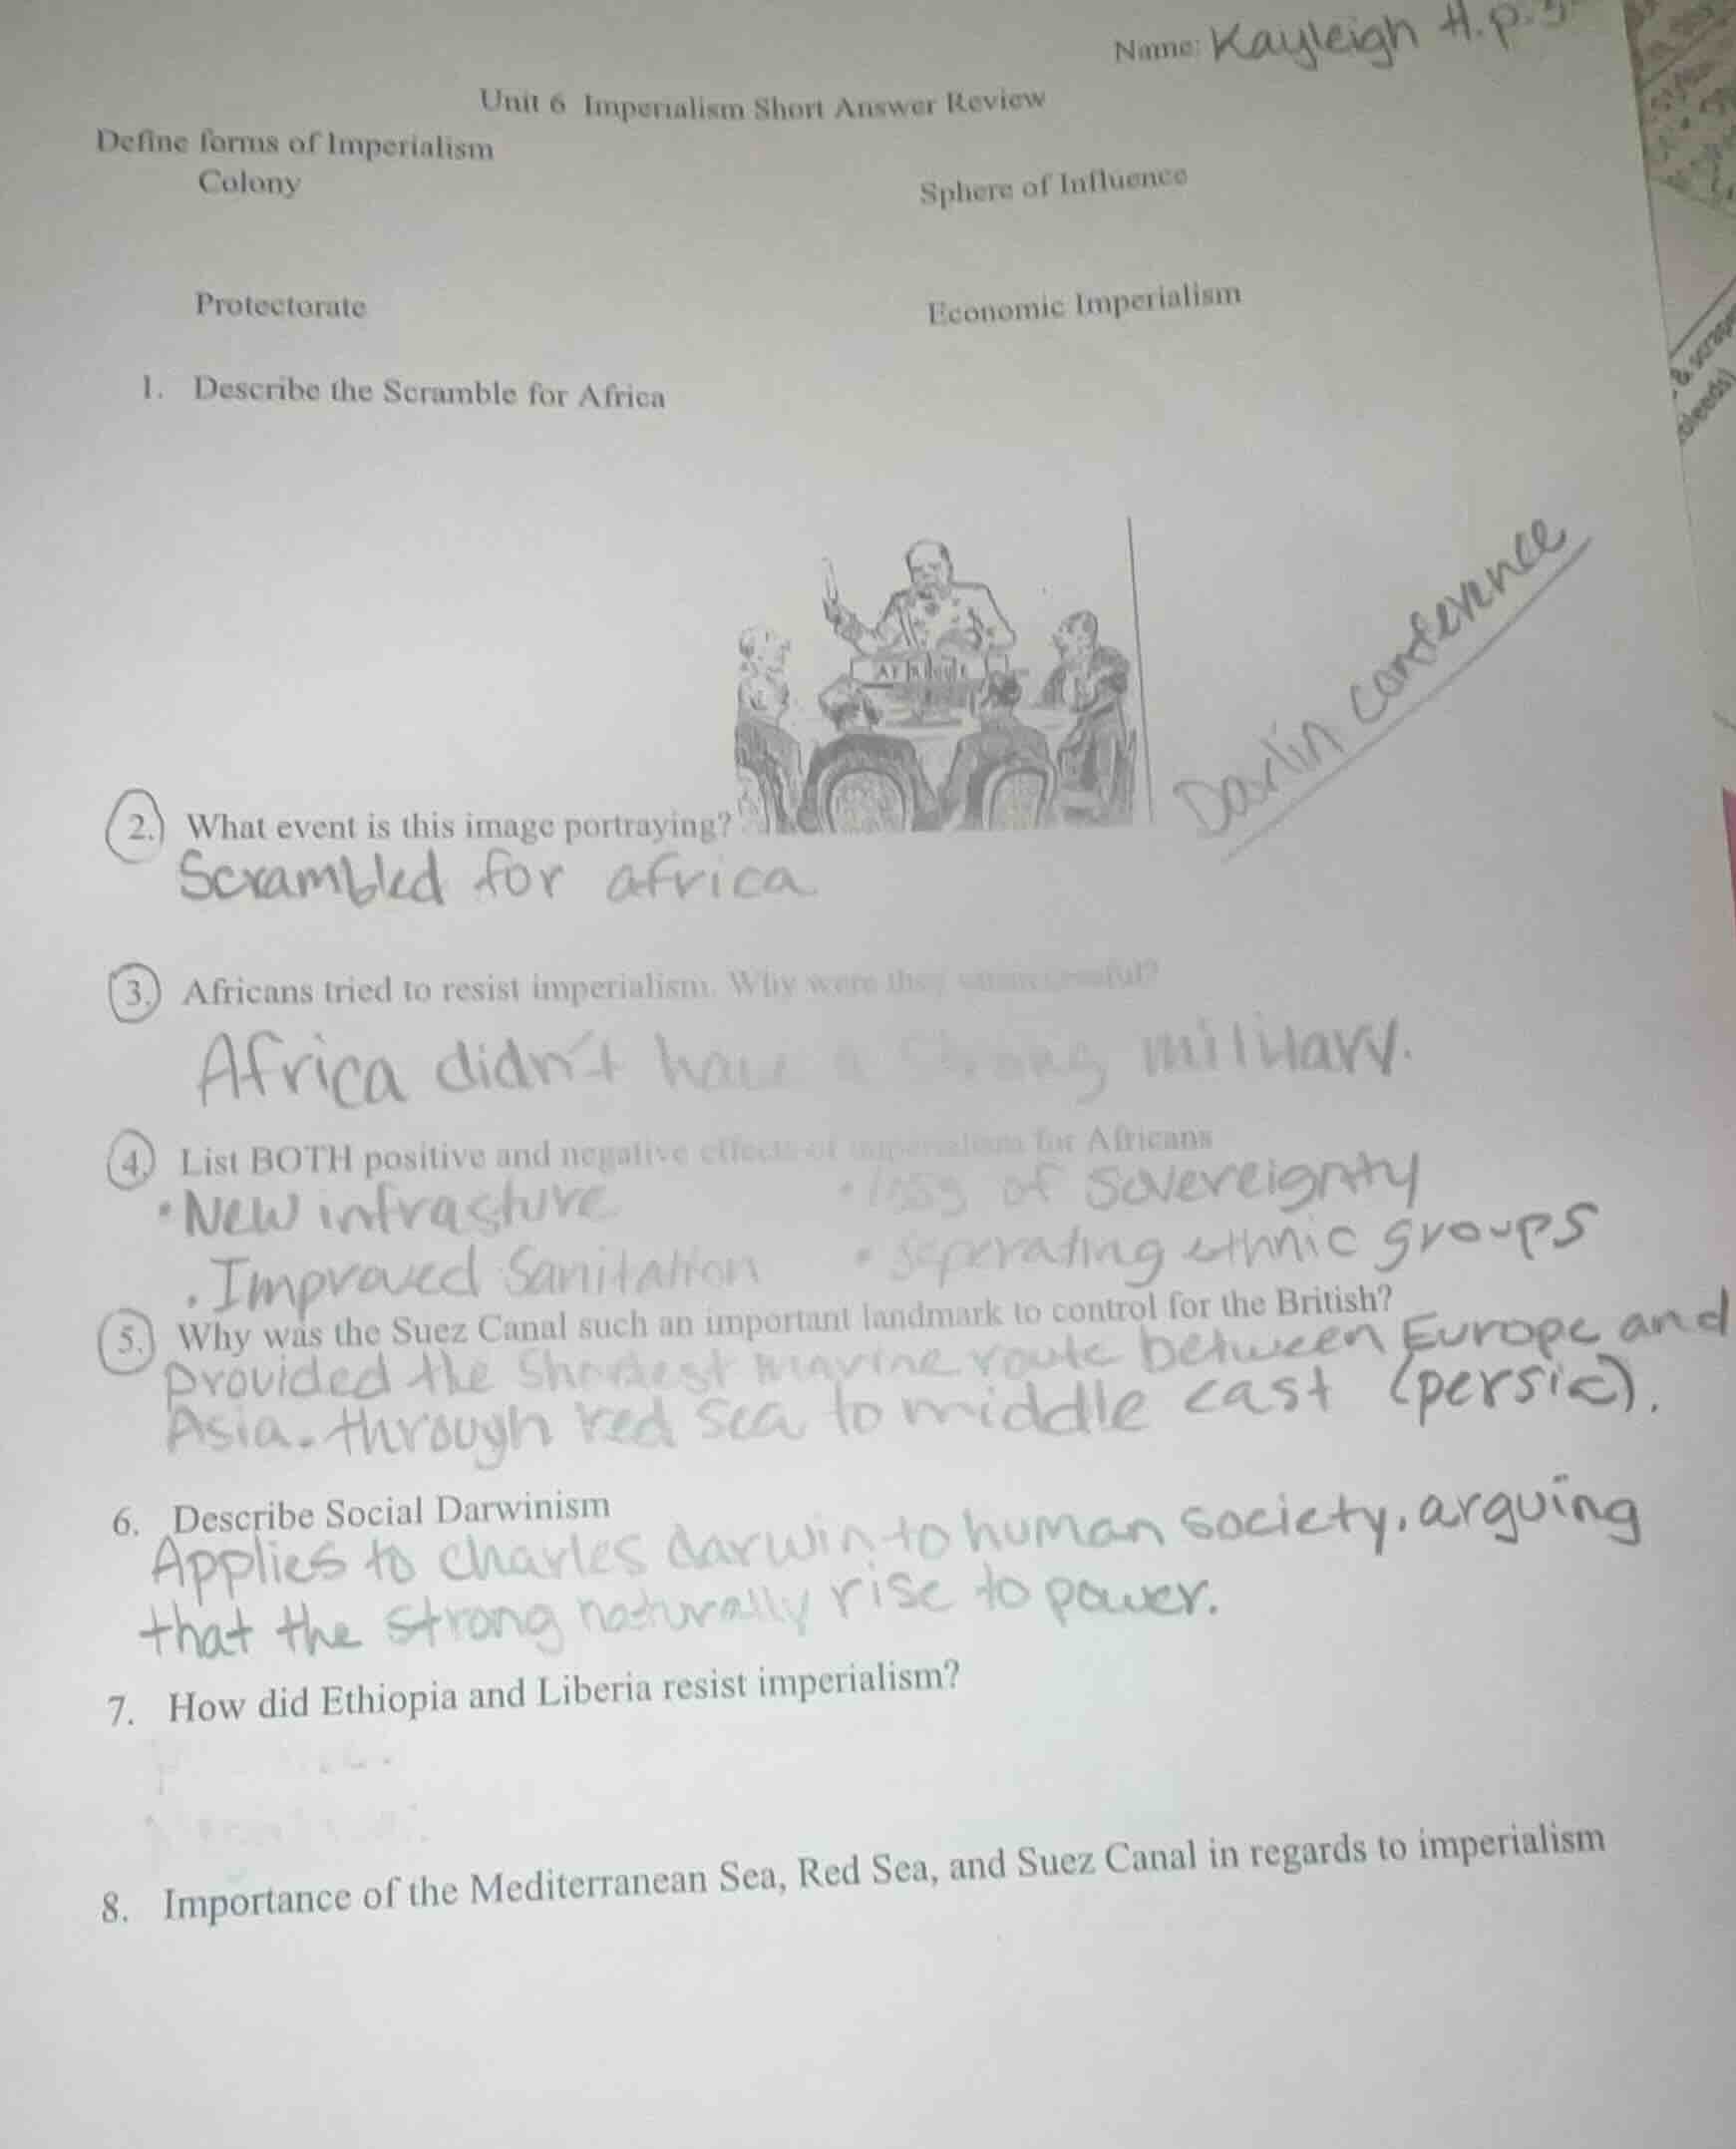 Name: Kayleigh H. p.
Unit 6 Imperialism Short Answer Review
Define forms of Imperialism
Colony
Sphere of Influence
Protectorate
Economic Imperialism
1. Describe the Scramble for Africa
Darlin conference
2. What event is this image portraying?
Scrambled for africa
3. Africans tried to resist imperialism. Why were they unsuccessful?
Africa didn't have a strong military.
4. List BOTH positive and negative effects of imperialism for Africans
• New infrasture
• loss of sovereignty
• Improved Sanitation
• seperating ethnic groups
5. Why was the Suez Canal such an important landmark to control for the British?
provided the shortest marine route between Europe and
Asia. through red sea to middle east (persia).
6. Describe Social Darwinism
Applies to charles darwin to human society, arguing
that the strong naturally rise to power.
7. How did Ethiopia and Liberia resist imperialism?
8. Importance of the Mediterranean Sea, Red Sea, and Suez Canal in regards to imperialism
& scrap